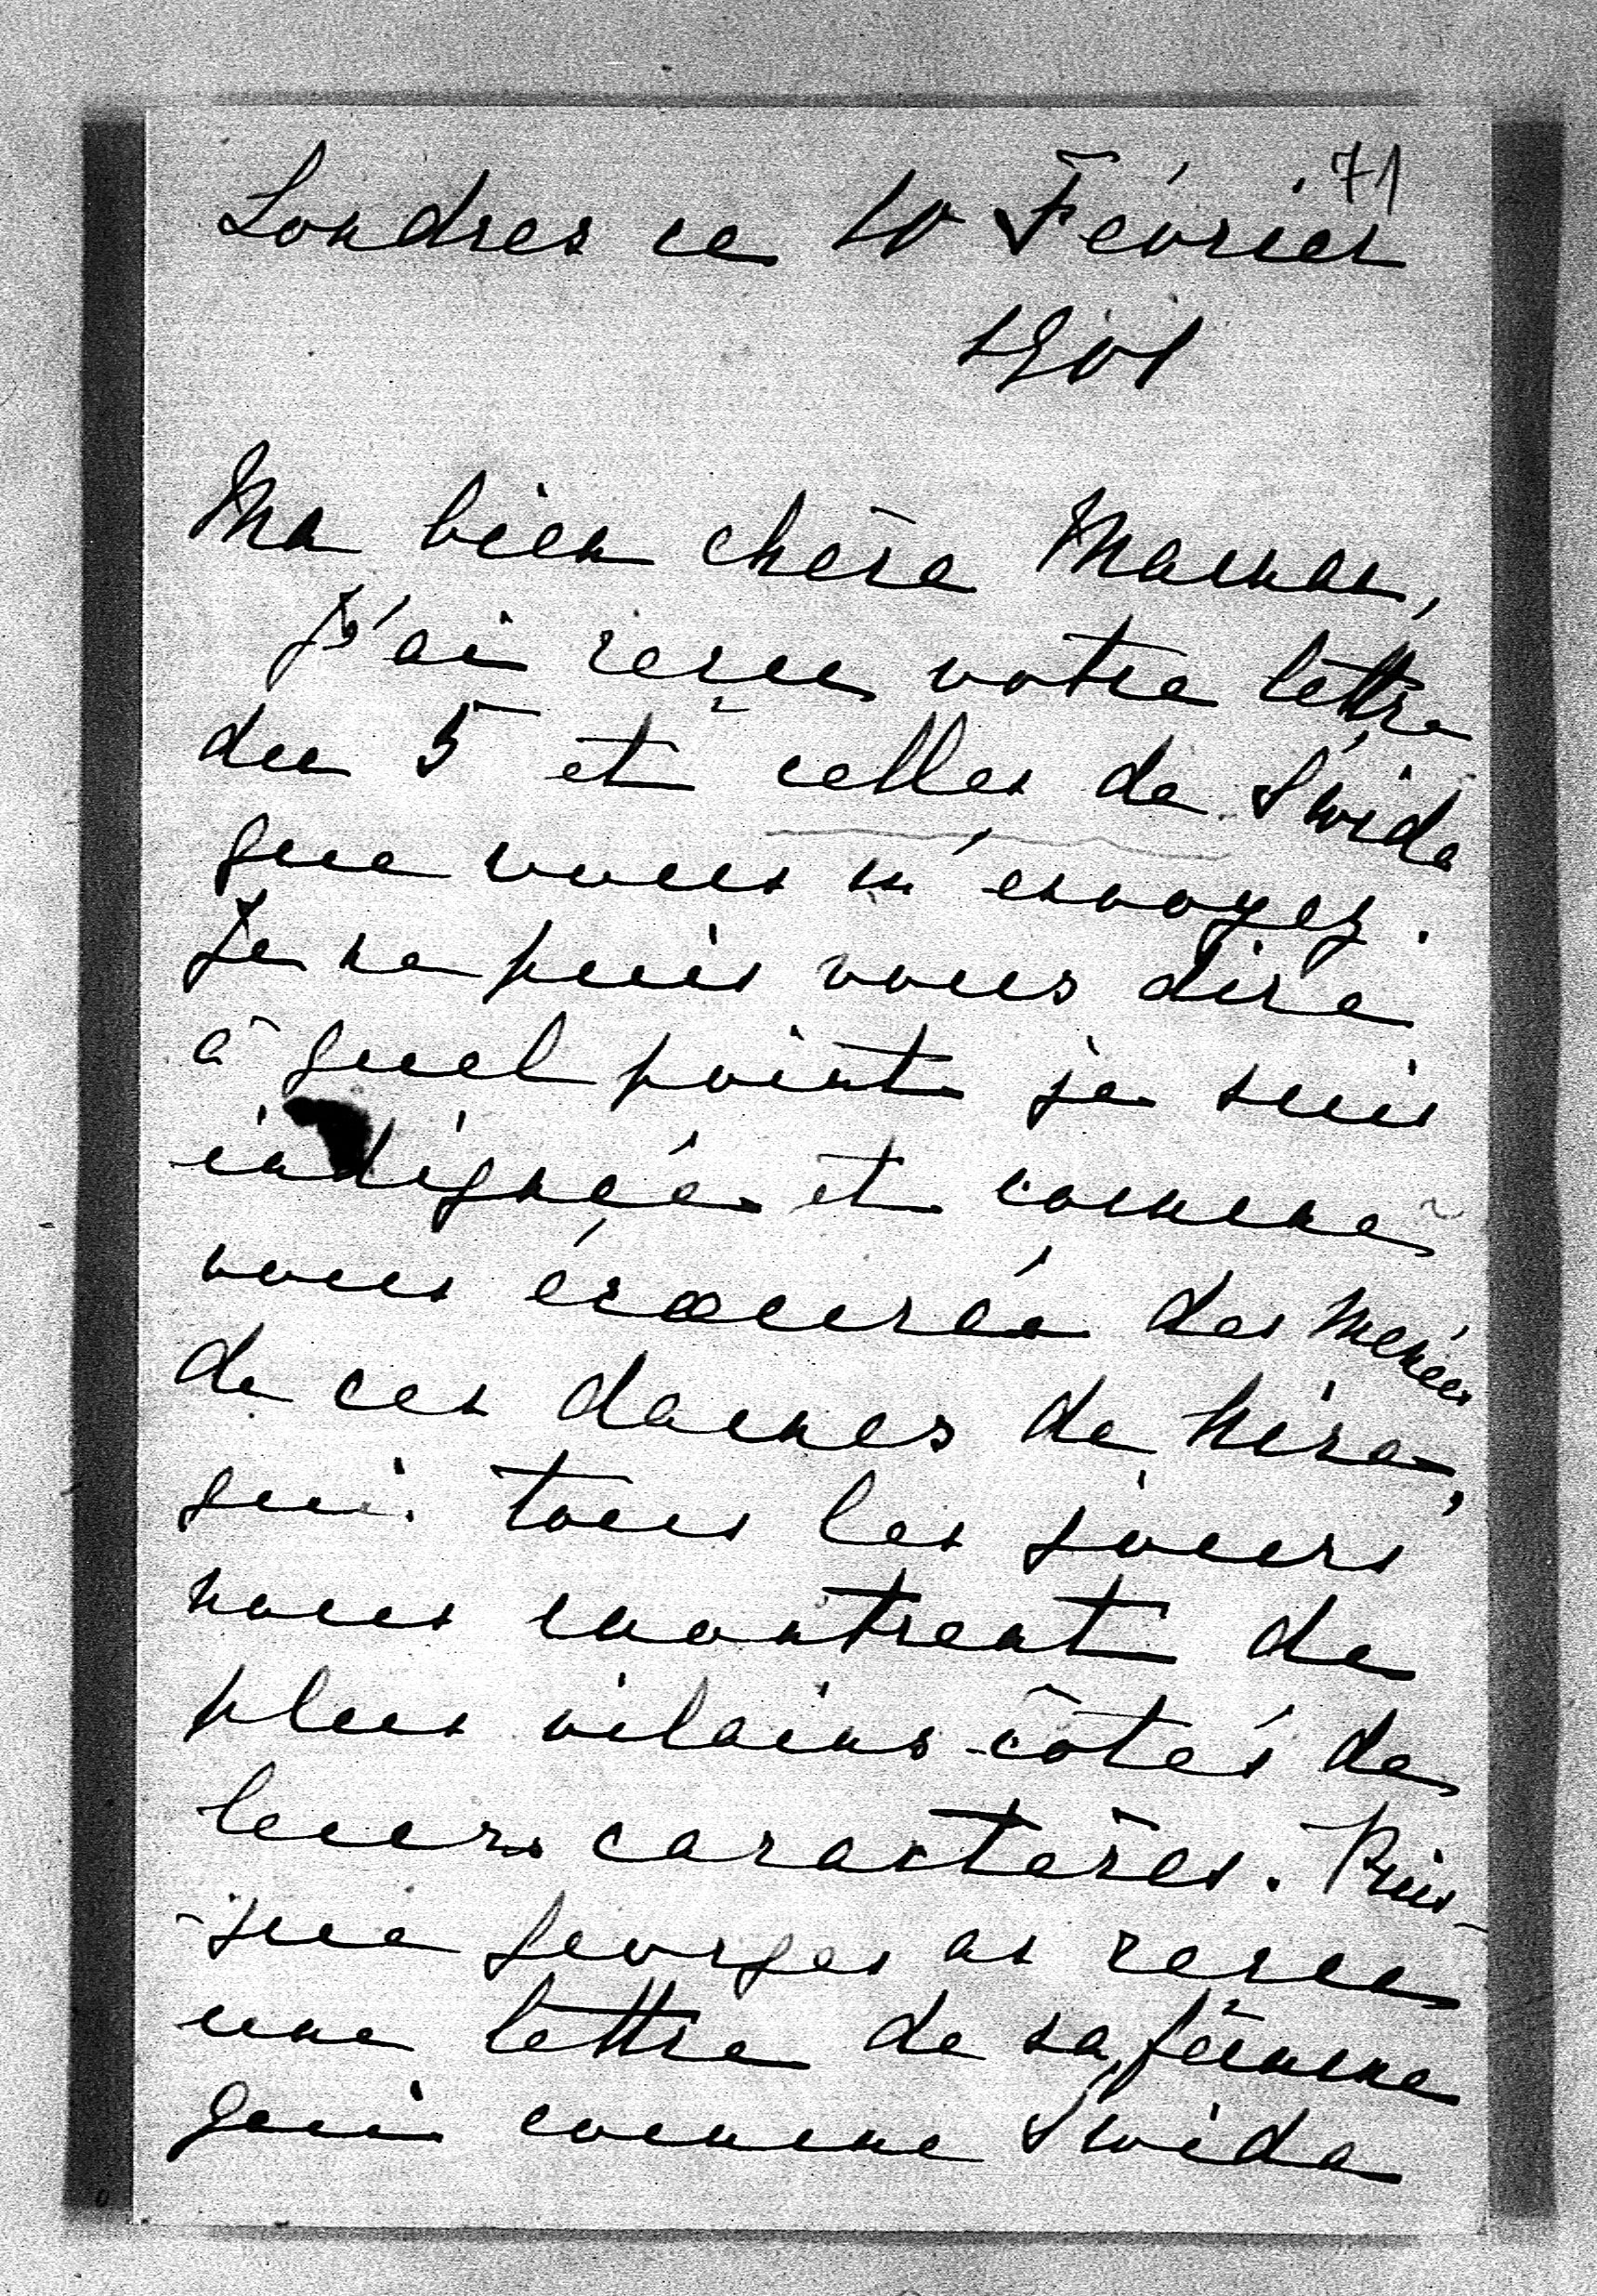 71
Londres ce 10 Février
1901
Ma bien chère Maman,
J'ai reçu votre lettre
du 5 et celles de Swida
que vous m'envoyez.
Je ne puis vous dire
à quel point je suis
indignée et comme
vous écœurée des menées
de ces dames de
qui tous les jours
nous montrent de
plus vilains côtés de
leurs caractères. Puis-
que Georges as reçu
une lettre de sa femme
qui comme Swida